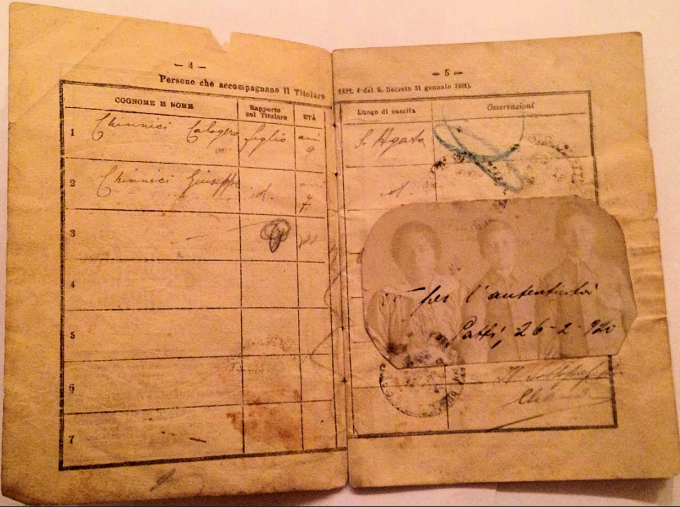 — 4 —
Persone che accompagnano il Titolare
COGNOME E NOME
Rapporto col Titolare
ETÀ
1 Chinnici Calogero figlio anni 9
2 Chinnici Giuseppe id.
3
4
5
6
7
— 5 —
(Art. 4 del R. Decreto 31 gennaio 1901).
Luogo di nascita
Osservazioni
S. Agata
id.
per l'autenticità
Patti, 26-2-920